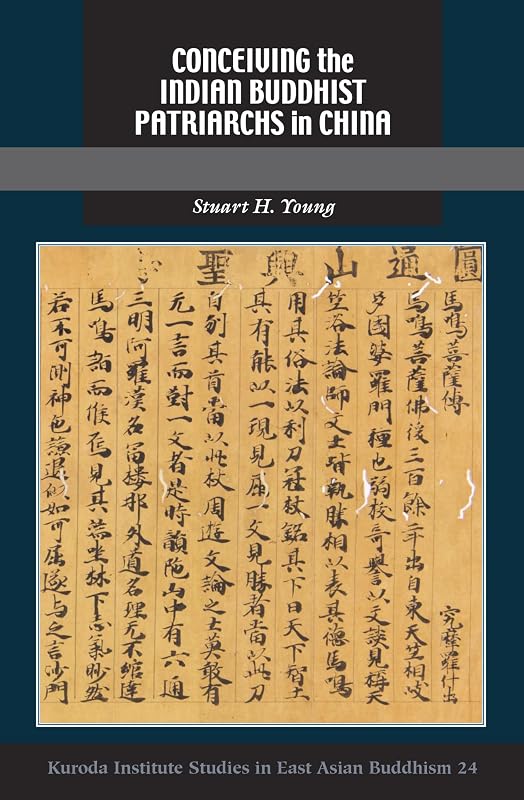 CONCEIVING the
INDIAN BUDDHIST
PATRIARCHS in CHINA
Stuart H. Young
圓通山興聖
馬鳴菩薩傳 羅什出
馬鳴菩薩佛後三百餘年出自東天竺相岐
多國婆羅門種也弱狡奇譽以文談見稱天
竺俗法論師文士皆執勝相以表其德馬鳴
用其俗法以利刀冠杖銘其下曰天下智士
其有能以一理見屈一文見勝者當以此刀
自刎其首常以此杖周遊文論之士莫敢有
无一言而對一文者是時韻陀山中有六通
三明阿羅漢名富樓那外道名理无不綜達
馬鳴詣而候焉見其端坐林下志氣眇然
若不可測神色謙退似如可屈遂与之言沙門
Kuroda Institute Studies in East Asian Buddhism 24